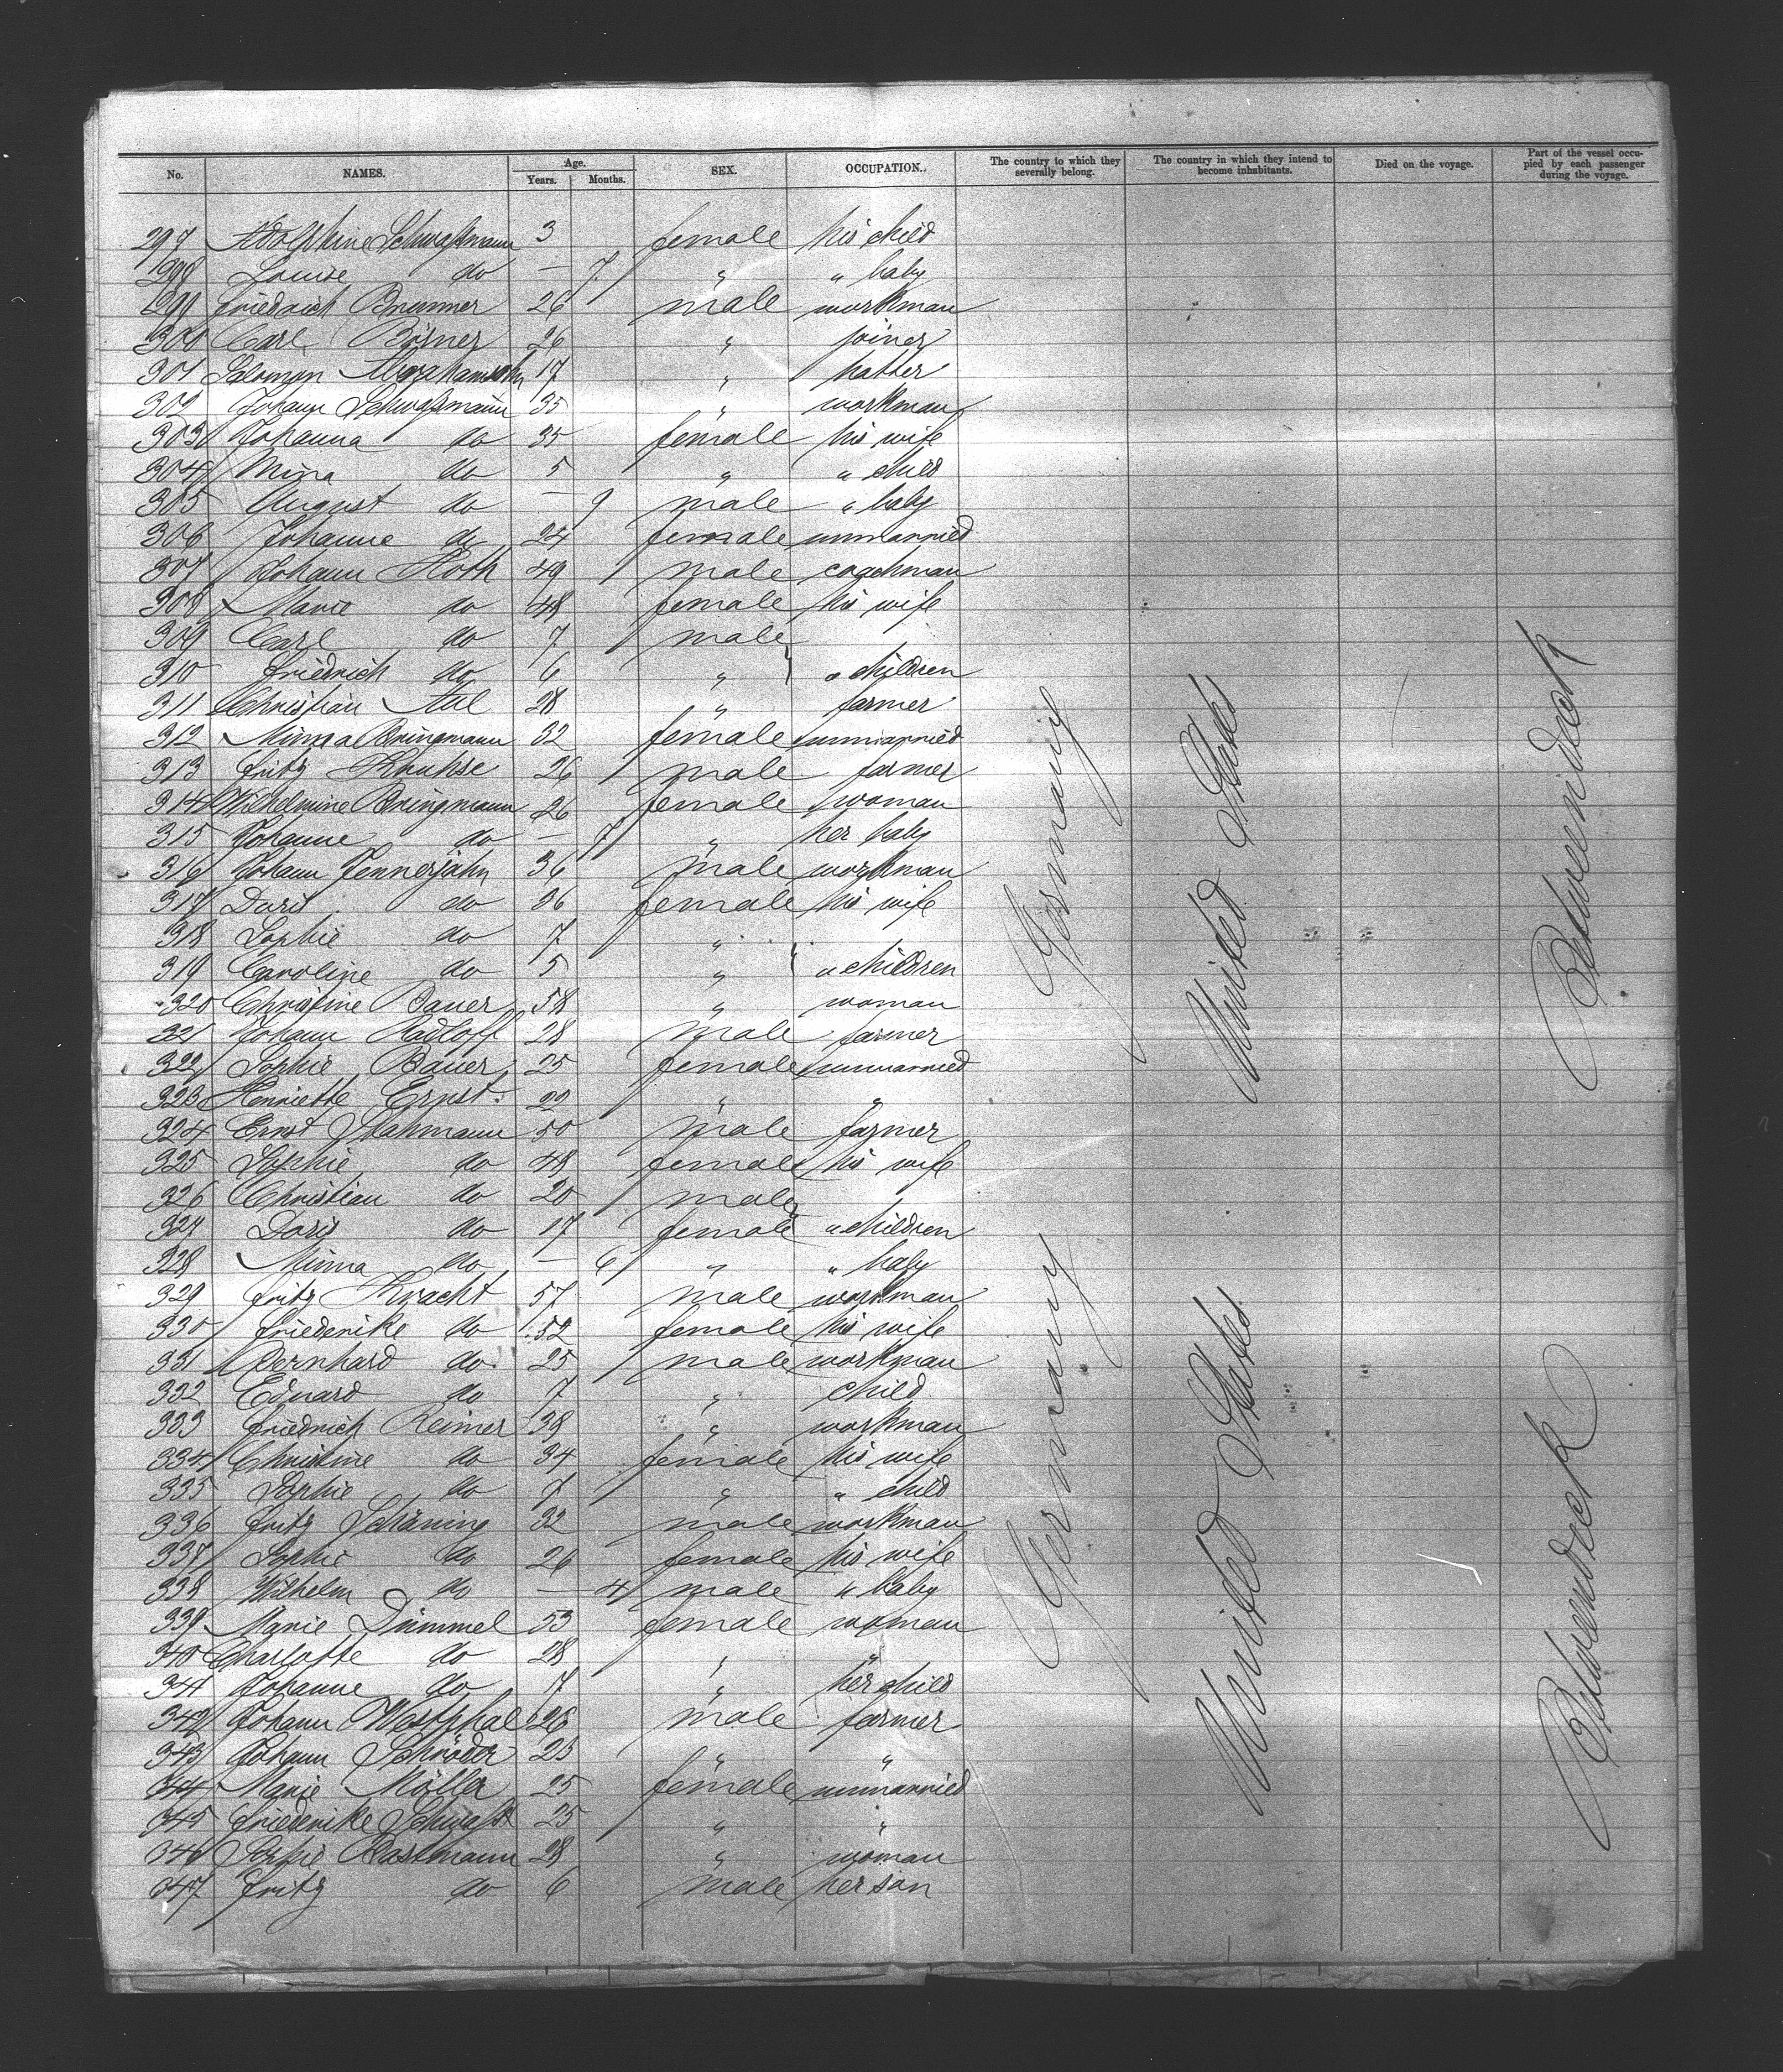 No. NAMES. Age. Years. Months. SEX. OCCUPATION. The country to which they severally belong. The country in which they intend to become inhabitants. Died on the voyage. Part of the vessel occupied by each passenger during the voyage.
297 Adolphine Schwaßmann 3 female his child
298 Louise do — 7 " " baby
299 Friedrich Brunner 26 male workman
300 Carl Börner 26 " joiner
301 Salomon Abrahamsohn 17 " hatter
302 Johann Schwaßmann 35 " workman
303 Johanna do 35 female his wife
304 Mina do 5 " " child
305 August do — 9 male " baby
306 Johanne do 24 female unmarried
307 Johann Roth 49 male coachman
308 Marie do 48 female his wife
309 Carl do 7 male
310 Friedrich do 6 " " children
311 Christian Aul 28 " farmer
312 Minna Bringmann 32 female unmarried
313 Fritz Kruhse 26 male farmer
314 Wilhelmine Bringmann 26 female woman
315 Johanne do — 7 " her baby
316 Johann Jennerjahn 36 male workman
317 Doris do 36 female his wife
318 Sophie do 7 "
319 Caroline do 5 " " children
320 Christine Bauer 58 " woman
321 Johann Radloff 28 male farmer
322 Sophie Bauer 25 female unmarried
323 Henriette Ernst 22 " "
324 Ernst Stahmann 50 male farmer
325 Sophie do 48 female his wife
326 Christian do 20 male
327 Doris do 17 female " children
328 Minna do — 6 " " baby
329 Fritz Kracht 57 male workman
330 Friederike do 52 female his wife
331 Bernhard do 25 male workman
332 Eduard do 7 " child
333 Friedrich Reimer 38 " workman
334 Christine do 34 female his wife
335 Sophie do 7 " " child
336 Fritz Schäning 32 male workman
337 Sophie do 26 female his wife
338 Wilhelm do — 4 male " baby
339 Marie Dümmel 53 female woman
340 Charlotte do 28 " "
341 Johanne do 7 " her child
342 Johann Westphal 26 male farmer
343 Johann Schröder 23 " "
344 Marie Möller 25 female unmarried
345 Friederike Schwaßt 25 " "
346 Sophie Bastmann 28 " woman
347 Fritz do 6 male her son
Germany
United States
Betweendeck
Germany
United States
Betweendeck